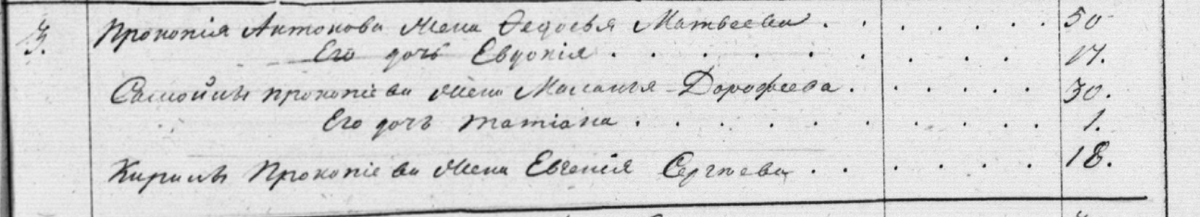 3. Прокопія Антонова жена Ѳедосья Матвеева . . . . . . 50
Его дочь Евдокія . . . . . . . . 17.
Самойлы Прокопіева жена Маланья Дорофеева . . . . . . 30.
Его дочь Татіана . . . . . . . . . 1.
Кирилы Прокопіева жена Евгенія Сергѣева . . . . . . 18.